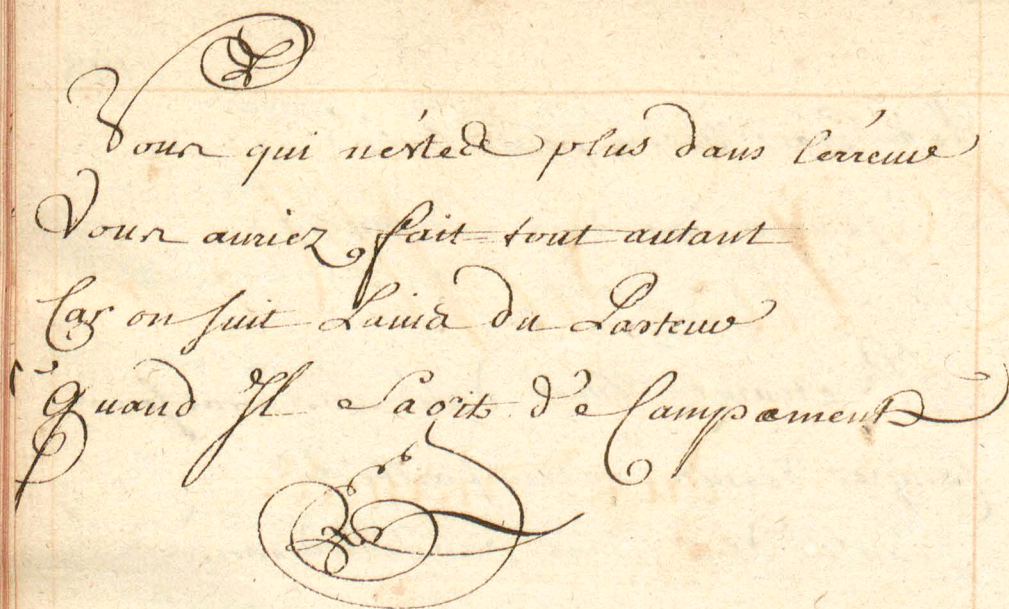 Vous qui n'éstes plus dans l'érreur
Vous auriez fait tout autant
Car on suit L'avis du Pasteur
quand Il s'agit de Campement